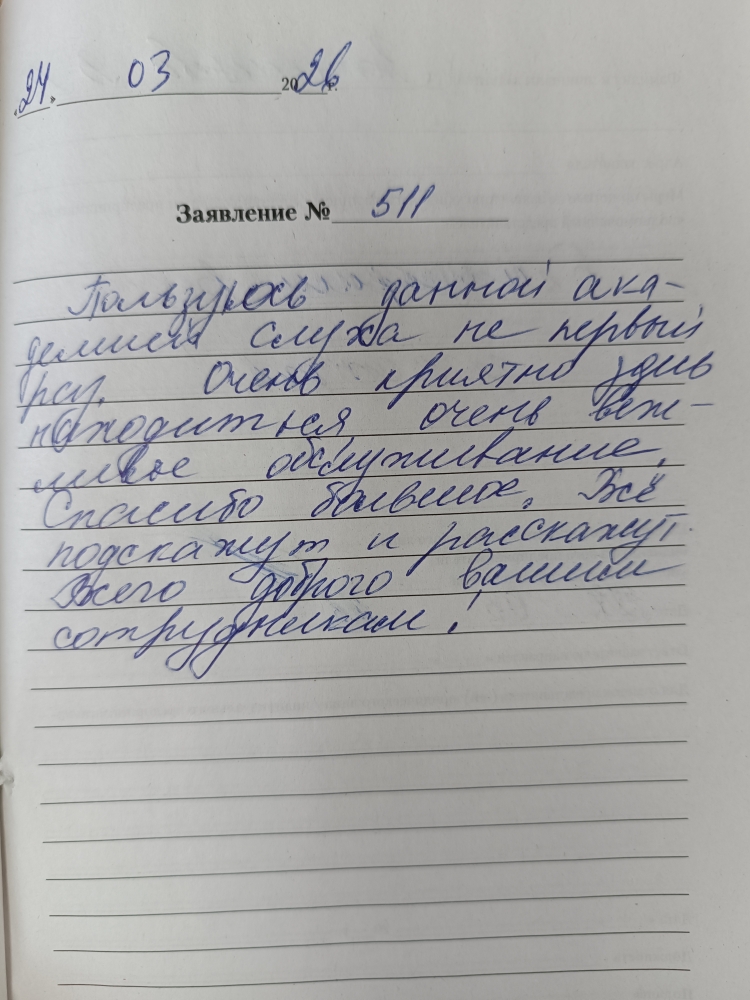 «24» 03 2026 г.
Заявление № 511
Пользуюсь данной ака-
демией слуха не первый
раз. Очень приятно здесь
находиться, очень веж-
ливое обслуживание.
Спасибо большое. Всё
подскажут и расскажут.
Всего доброго вашим
сотрудникам!